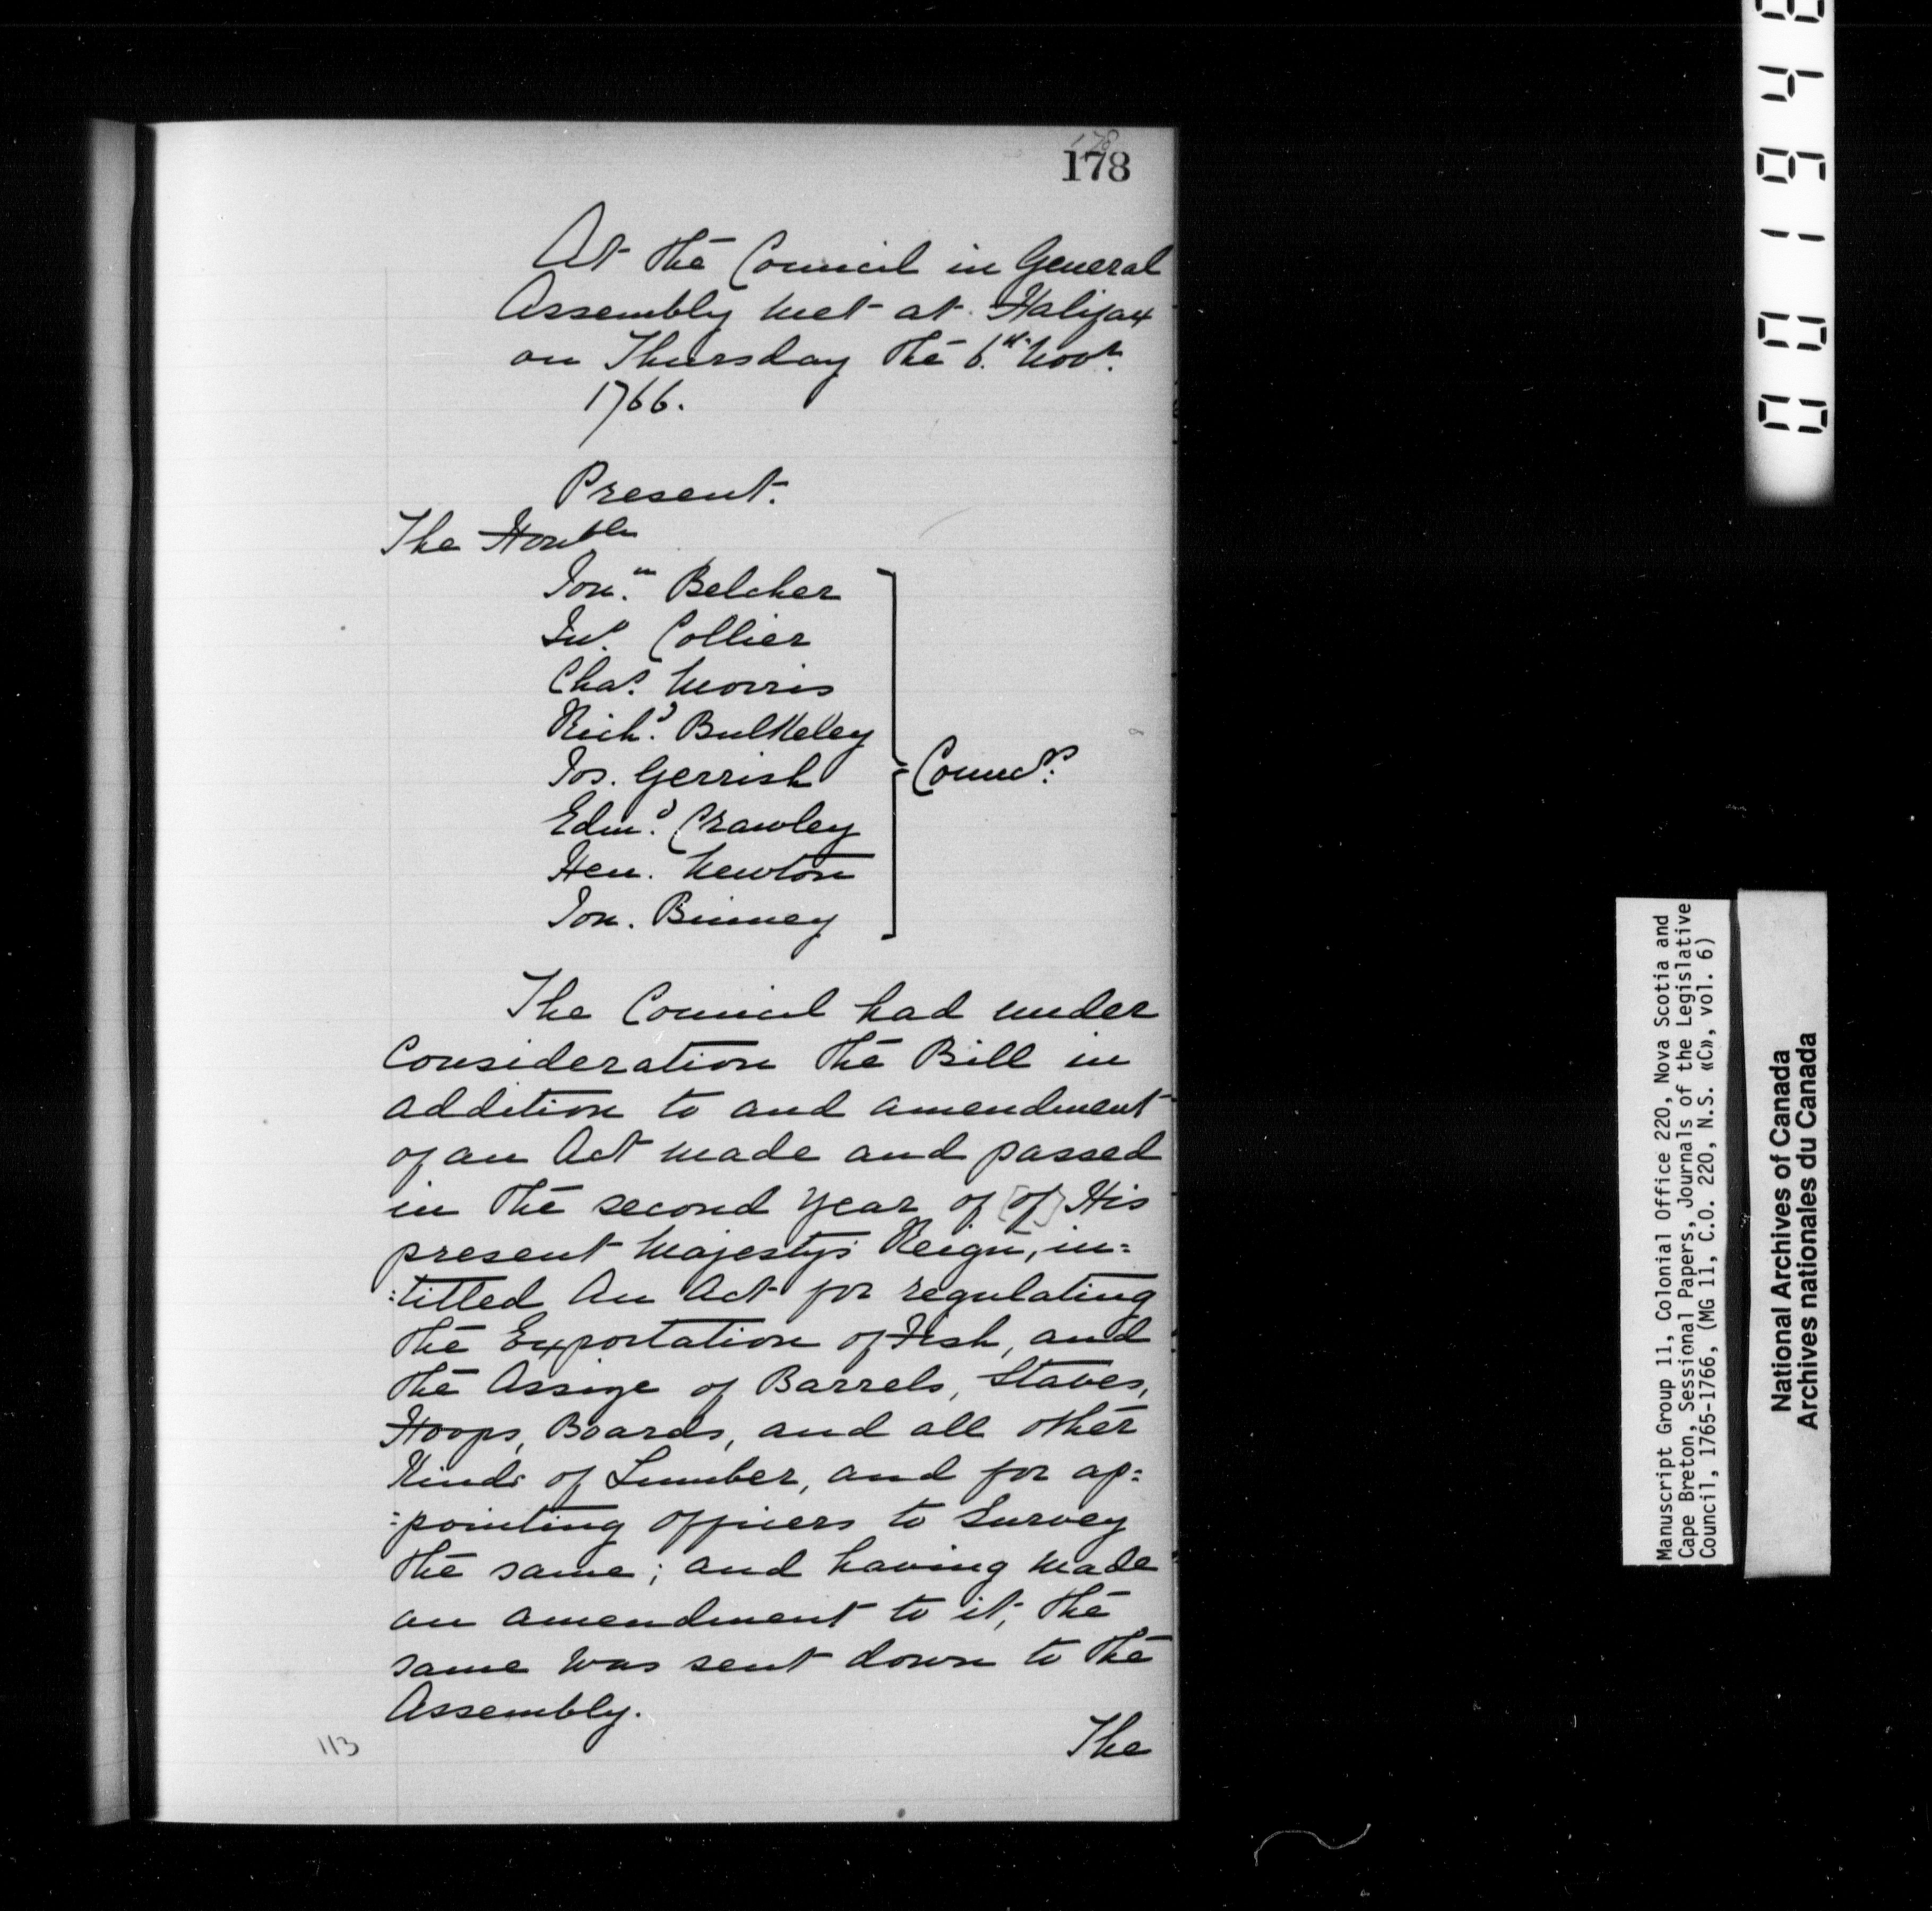 178
178
At the Council in General
Assembly met at Halifax
on Thursday the 6.th Novr.
1766.
Present.
The Honble
Jon.n Belcher
Jno. Collier
Chas. Morris
Richd. Bulkeley
Jos. Gerrish
Edmd. Crawley
Hen. Newton
Jon. Binney
Councrs:
The Council had under
Consideration the Bill in
addition to and amendment
of an Act made and passed
in the second year of [of] His
present Majesty's Reign, in=
:titled An Act for regulating
the Exportation of Fish, and
the Assize of Barrels, Staves,
Hoops, Boards, and all other
Kinds of Lumber, and for ap=
=pointing Officers to Survey
the same; and having made
an amendment to it, the
same was sent down to the
Assembly.
The
113
Manuscript Group 11, Colonial Office 220, Nova Scotia and
Cape Breton, Sessional Papers, Journals of the Legislative
Council, 1765-1766, (MG 11, C.O. 220, N.S. «C», vol. 6)
National Archives of Canada
Archives nationales du Canada